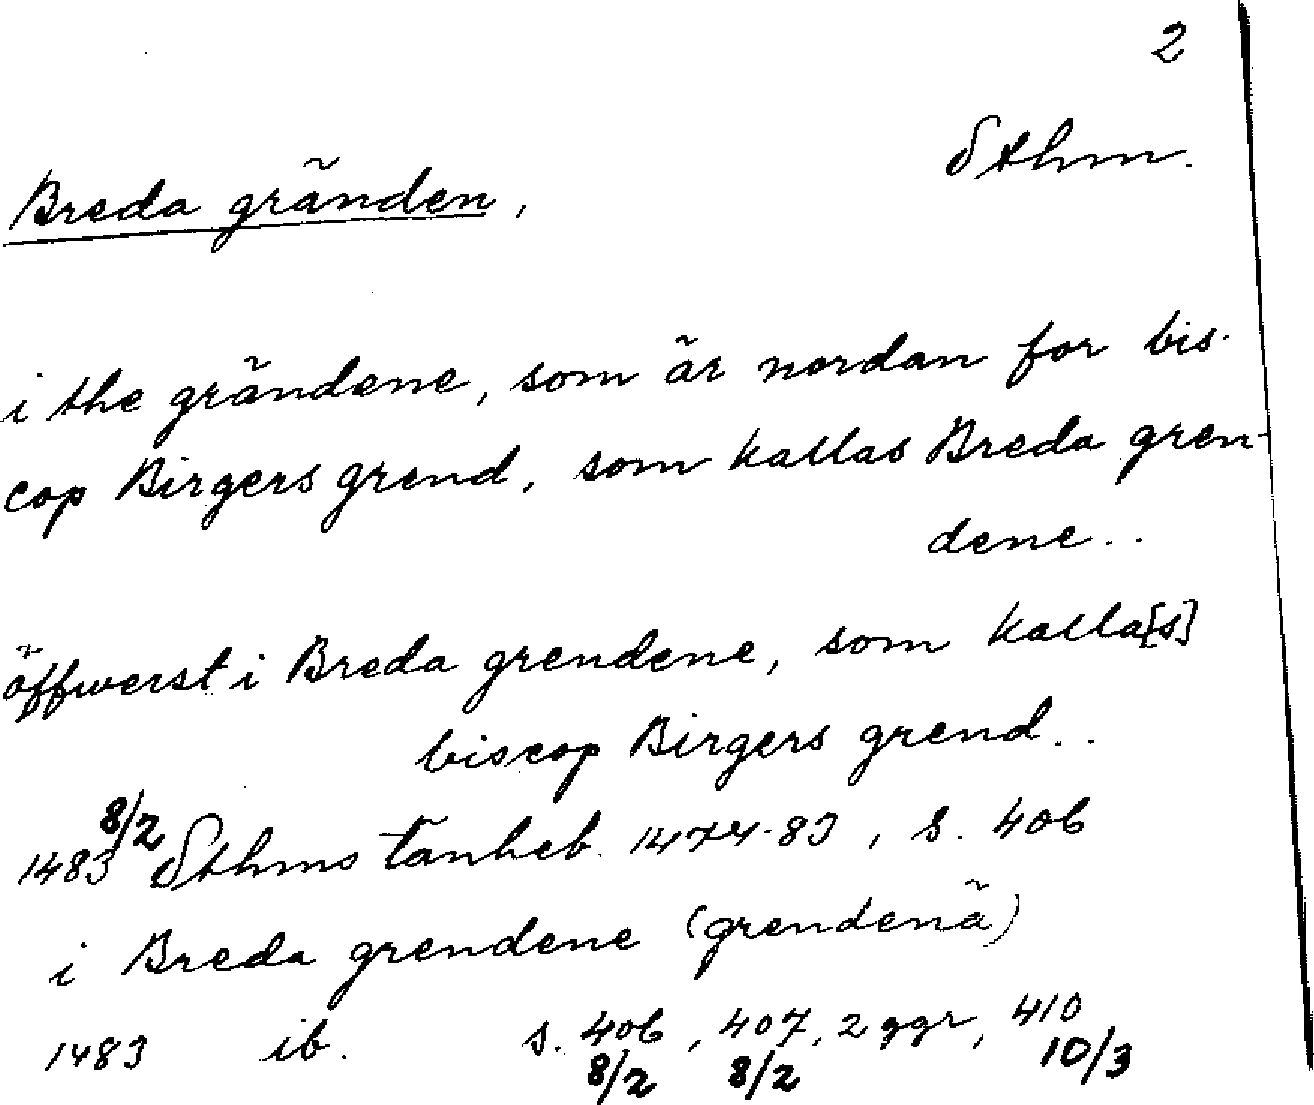 2
Sthm.
Breda gränden,
i the grändene, som är nordan for bis-
cop Birgers grend, som kallas Breda gren-
dene..
öffwerst i Breda grendene, som kalla[s]
biscop Birgers grend..
1483 8/2 Sthms tänkeb. 1474-83, s. 406
i Breda grendene (grendenä)
1483 ib. s. 406, 407, 2 ggr, 410
8/2 8/2 10/3